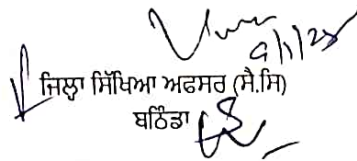 9/1/25
ਜਿਲ੍ਹਾ ਸਿੱਖਿਆ ਅਫਸਰ (ਸੈ.ਸਿ)
ਬਠਿੰਡਾ